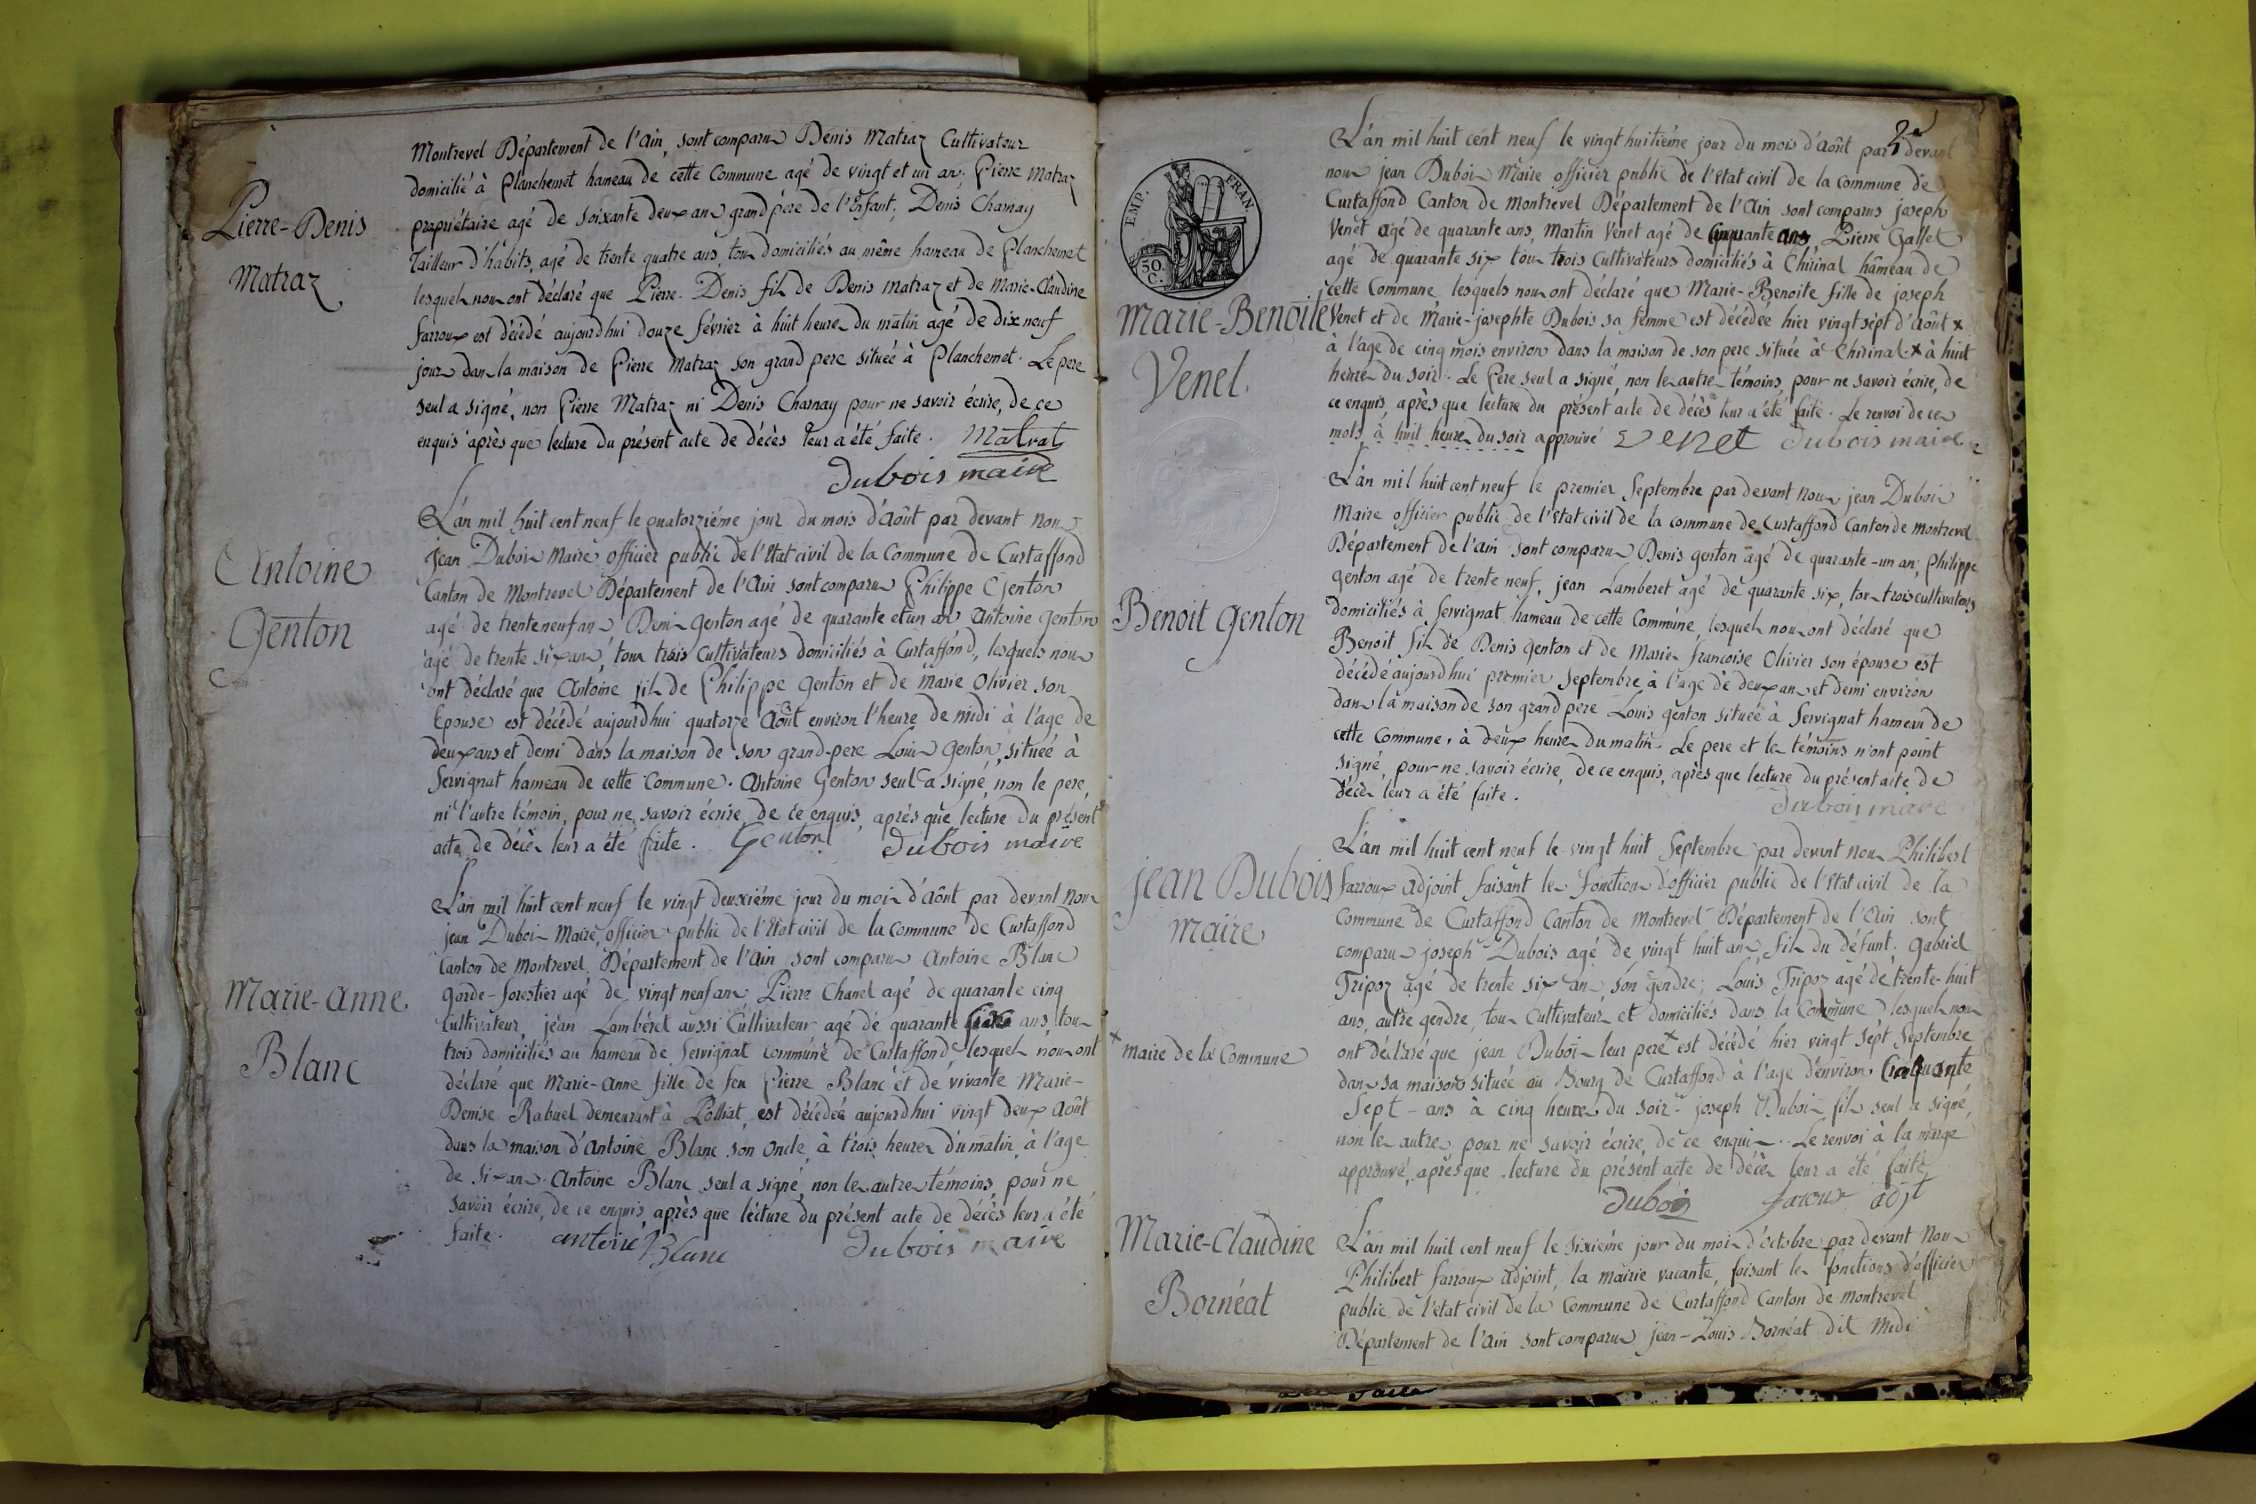 Montrevel Département de l'ain, sont comparus Denis Matraz Cultivateur
domicilié à Planchemet hameau de cette Commune agé de vingt et un an. Pierre Matraz
Pierre-Denis
propriétaire agé de soixante deux ans grand père de l'Enfant, Denis Charnay
tailleur d'habits, agé de trente quatre ans, tous domiciliés au même hameau de Planchemet
Matraz
lesquels nous ont déclaré que Pierre-Denis fils de Denis matraz et de Marie-Claudine
farroux est décédé aujourdhui douze février à huit heures du matin agé de dix neuf
jours dans la maison de Pierre Matraz son grand pere située à Planchemet. Le pere
seul a signé, non Pierre Matraz ni Denis Charnay pour ne savoir écrire, de ce
enquis après que lecture du présent acte de décès leur a été faite. Matrat
Dubois maire
L'an mil huit cent neuf le quatorziéme jour du mois d'août par devant nous
Jean Dubois Maire officier public de l'Etat civil de la Commune de Curtaffond
Antoine
Canton de Montrevel Département de l'Ain sont comparus Philippe Genton
agé de trente neuf ans Denis genton agé de quarante et un an Antoine genton
Genton
agé de trente six ans, tous trois Cultivateurs domiciliés à Curtaffond, lesquels nous
ont déclaré que Antoine fils de Philippe Genton et de Marie Olivier son
Epouse est décédé aujourdhui quatorze Août environ l'heure de midi à l'age de
deux ans et demi dans la maison de son grand-pere Louis Genton, située à
Servignat hameau de cette Commune. Antoine Genton seul a signé, non le pere,
ni l'autre témoin, pour ne savoir écrire de ce enquis, après que lecture du présent
acte de décès leur a été faite. Genton Dubois maire
L'an mil huit cent neuf le vingt deuxiéme jour du mois d'Août par devant nous
jean Dubois Maire, officier public de l'Etat civil de la Commune de Curtaffond
Canton de Montrevel, Département de l'Ain sont comparus Antoine Blanc
Marie-anne
garde-forestier agé de vingt neuf ans, Pierre Chanel agé de quarante cinq
Cultivateur, jean Lambérel aussi Cultivateur agé de quarante ans, tous
trois domiciliés au hameau de Servignat commune de Curtaffond lesquels nous ont
Blanc
déclaré que Marie-Anne fille de feu Pierre Blanc et de vivante Marie-
Denise Rabuel demeurant à Polliat, est décédée aujourdhui vingt deux Août
dans la maison d'Antoine Blanc son Oncle, à trois heures du matin, à l'age
de six ans. Antoine Blanc seul a signé, non les autres témoins, pour ne
savoir écrire, de ce enquis, après que lecture du présent acte de décès leur a été
faite. Blanc Dubois maire
2
L'an mil huit cent neuf le vingt huitiéme jour du mois d'Août par devant
nous jean Dubois Maire officier public de l'Etat civil de la commune de
EMP. FRAN.
50. C.
Curtaffond Canton de Montrevel Département de l'Ain sont comparus joseph
Venet agé de quarante ans, Martin Venet agé de cinquante ans, Pierre Gallet
agé de quarante six tous trois Cultivateurs domiciliés à Chirinal hameau de
cette Commune, lesquels nous ont déclaré que Marie-Benoite fille de joseph
Marie-Benoite
Venet et de Marie-josephte Dubois sa femme est décédée hier vingt sept d'Août x
à l'age de cinq mois environ dans la maison de son pere située à Chirinal. x à huit
Venet.
heures du soir. Le Pere seul a signé, non les autres témoins, pour ne savoir écrire, de
ce enquis, après que lecture du présent acte de décès leur a été faite. Le renvoi de ces
mots, à huit heures du soir approuvé Venet Dubois maire
L'an mil huit cent neuf le premier Septembre par devant nous jean Dubois
Maire officier public de l'Etat civil de la commune de Curtaffond Canton de montrevel
Département de l'ain sont comparus Denis genton agé de quarante-un an, Philippe
genton agé de trente neuf, jean Lamberet agé de quarante six, tous trois cultivateurs
Benoit Genton
domiciliés à Servignat hameau de cette Commune, lesquels nous ont déclaré que
Benoit fils de Denis genton et de Marie françoise Olivier son épouse est
décédé aujourdhui premier Septembre à l'age de deux ans et demi environ
dans la maison de son grand pere Louis genton située à Servignat hameau de
cette Commune, à deux heures du matin. Le pere et les témoins n'ont point
signé, pour ne savoir écrire, de ce enquis, après que lecture du présent acte de
décès leur a été faite. Dubois maire
L'an mil huit cent neuf le vingt huit Septembre par devant nous Philibert
jean Dubois
farroux adjoint faisant les fonctions d'officier public de l'Etat civil de la
commune de Curtaffond Canton de Montrevel Département de l'Ain sont
maire
comparus joseph Dubois agé de vingt huit ans, fils du défunt. Gabriel
Tripoz agé de trente six ans, son gendre; Louis Tripoz agé de trente-huit
ans, autre gendre, tous Cultivateurs et domiciliés dans la Commune lesquels nous
x maire de la Commune
ont déclaré que jean Dubois leur pere x est décédé hier vingt sept Septembre
dans sa maison située au Bourg de Curtaffond à l'age d'environ Cinquante
Sept-ans à cinq heures du soir. joseph Dubois fils seul a signé,
non les autres, pour ne savoir écrire, de ce enquis. Le renvoi à la marge
approuvé, après que lecture du présent acte de décès leur a été faite,
Dubois faroux adjt
Marie-Claudine
L'an mil huit cent neuf le sixiéme jour du mois d'octobre par devant nous
Philibert farroux adjoint, la mairie vacante, faisant les fonctions d'officier
Bornéat
public de l'etat civil de la Commune de Curtaffond Canton de Montrevel
Département de l'ain sont comparus jean-Louis Bornéat dit Midi